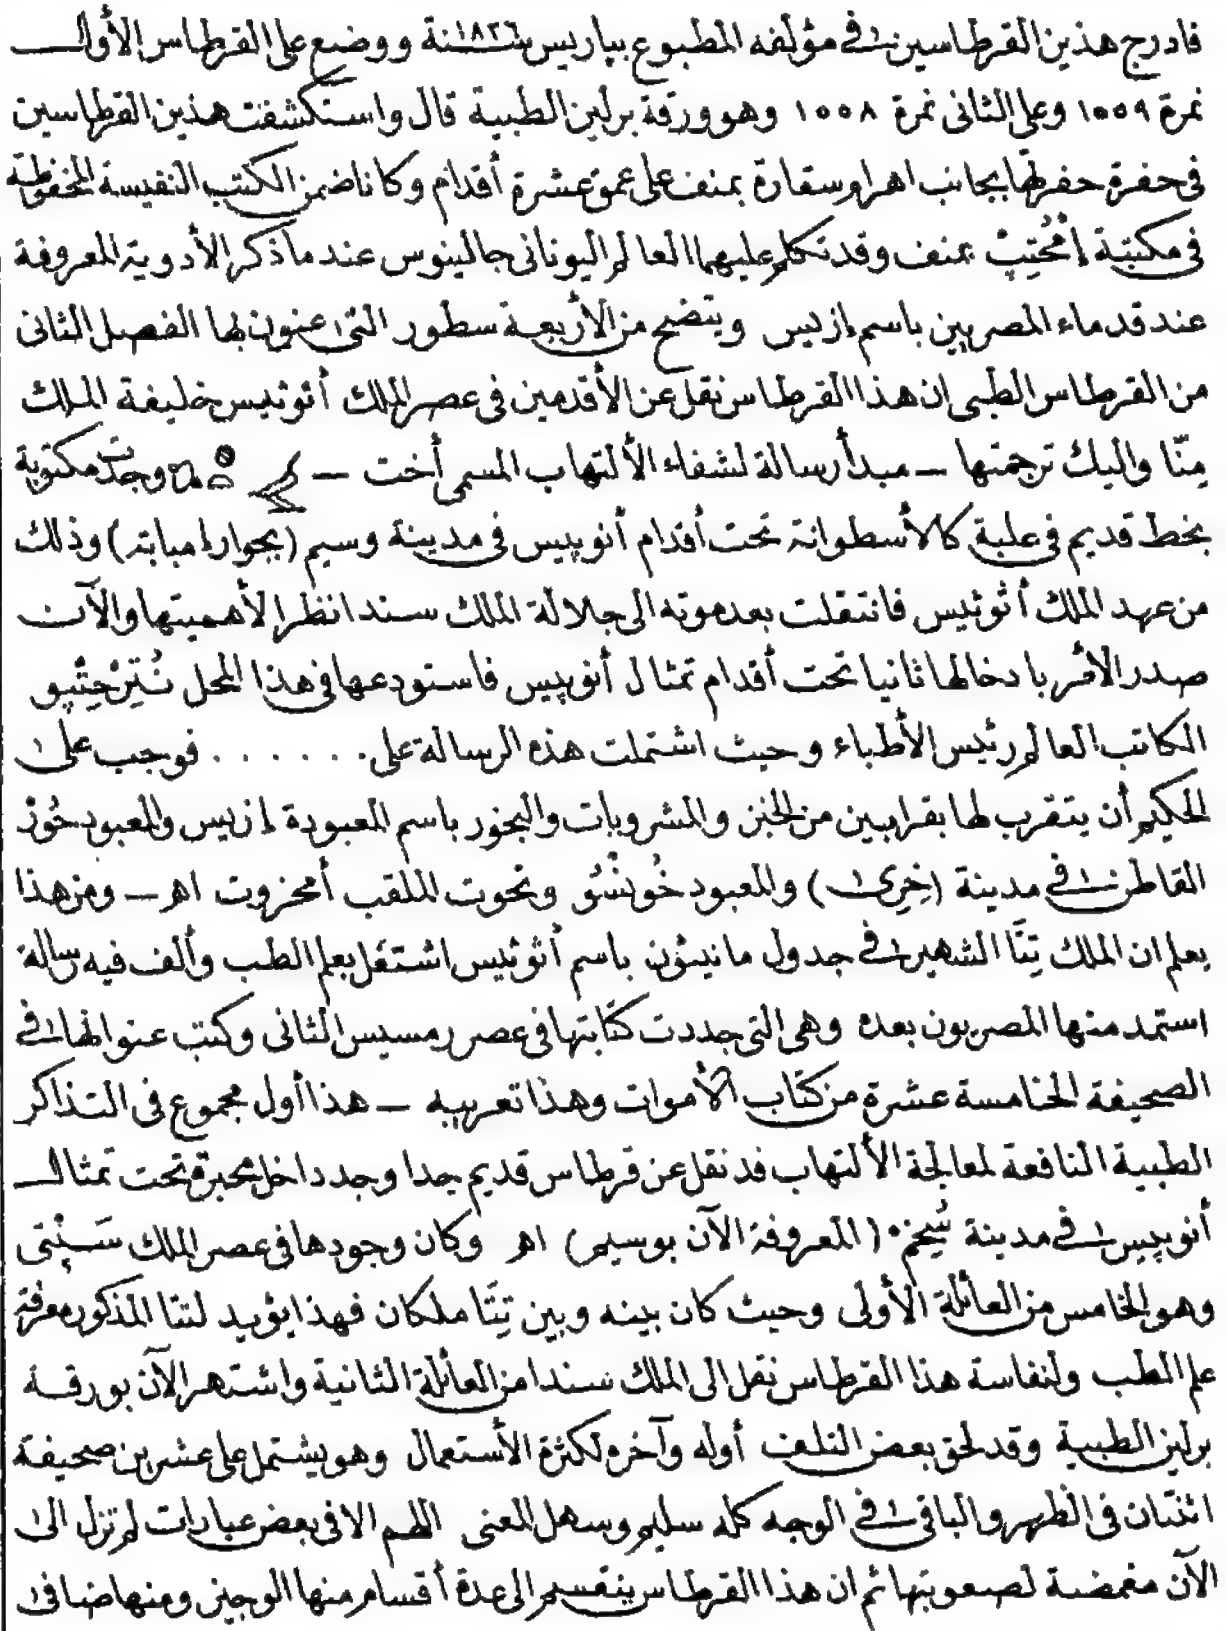 فادرج هذين القرطاسين في مؤلفه المطبوع بباريس سنة ١٨٢٦ ووضع على القرطاس الأول
نمرة ١٥٥٩ وعلى الثانى نمرة ١٥٥٨ وهو ورقة برلين الطبية قال واستكشفت هذين القرطاسين
فى حفرة حفرتها بجانب اهرام سقارة بمنف على عمق عشرة أقدام وكانا ضمن الكتب النفيسة المحفوظة
فى مكتبة إمحُتِبْ بمنف وقد تكلم عليهما العالم اليونانى جالينوس عند ما ذكر الأدوية المعروفة
عند قدماء المصريين باسم إزيس ويتضح من الأربعة سطور التى عنون لها الفصل الثانى
من القرطاس الطبى ان هذا القرطاس نقل عن الأقدمين فى عصر الملك أثوثيس خليفة الملك
مِنّا واليك ترجمتها — مبدأ رسالة لشفاء الألتهاب المسمى أخت — وجدت مكتوبة
بخط قديم فى علبة كالأسطوانة تحت أقدام أنوبيس فى مدينة وسيم (بجوار إمبابة) وذلك
من عهد الملك أثوثيس فانتقلت بعد موته الى جلالة الملك سندا نظرا لأهميتها والآن
صدر الأمر بادخالها ثانيا تحت أقدام تمثال أنوبيس فاستودعها فى هذا المحل نُتِرْحِتْپو
الكاتب العالم رئيس الأطباء وحيث اشتملت هذه الرسالة على . . . . . . فوجب على
الحكيم أن يتقرب لها بقرابين من الخبز والمشروبات والبخور باسم المعبودة إزيس والمعبود حُوز
القاطن فى مدينة (خِرِى) والمعبود خُونْسُو وتحوت الملقب أمحزوت اهر — ومن هذا
يعلم ان الملك تِتَّا الشهير فى جدول مانيثون باسم أثوثيس اشتغل بعلم الطب وألف فيه رسالة
استمد منها المصريون بعده وهى التى جددت كتابتها فى عصر رمسيس الثانى وكتب عنوانها فى
الصحيفة الخامسة عشرة من كتاب الأموات وهذا تعريبه — هذا أول مجموع فى التذاكر
الطبية النافعة لمعالجة الألتهاب قد نقل عن قرطاس قديم جدا وجد داخل محبرة تحت تمثال
أنوبيس فى مدينة سُيخم (المعروفة الآن بوسيم) اهر وكان وجودها فى عصر الملك سَبْتِى
وهو الخامس من العائلة الأولى وحيث كان بينه وبين تِتَّا ملكان فهذا يؤيد لتتا المذكور معرفة
علم الطب ولنفاسة هذا القرطاس نقل الى الملك سندا من العائلة الثانية واشتهر الآن بورقة
برلين الطبية وقد لحق بعض التلف أوله وآخره لكثرة الأستعمال وهو يشتمل على عشرين صحيفة
اثنتان فى الظهر والباقى فى الوجه كله سليم وسهل المعنى اللهم الا فى بعض عبارات لم تزل الى
الآن مغمضة لصعوبتها ثم ان هذا القرطاس ينقسم الى عدة أقسام منها الوجيز ومنها ضافى